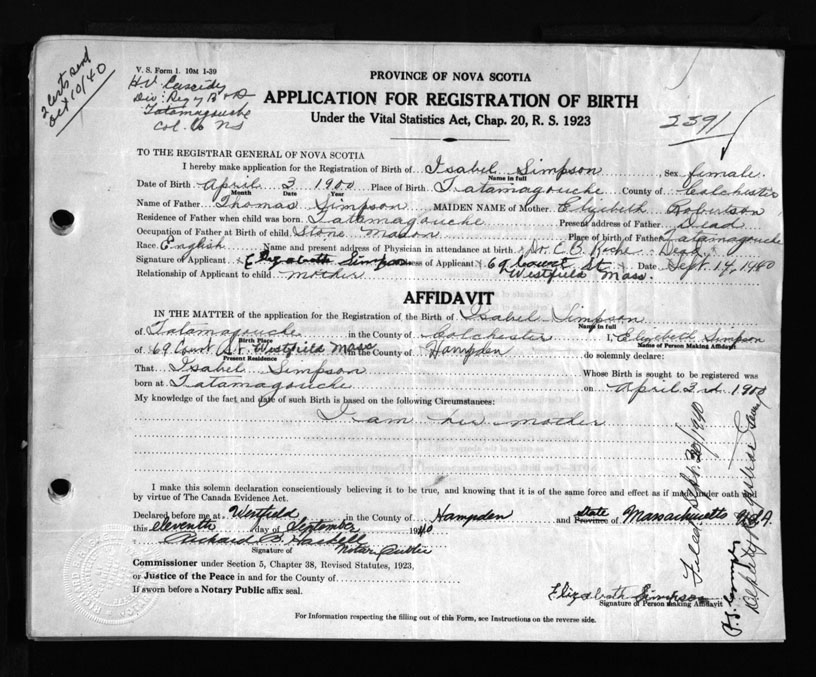 2 Certs sent
Oct 10/40
V. S. Form 1. 10M 1-39
H V Cassidy
Div: Reg of B + D
Tatamagouche
Col. Co N S
PROVINCE OF NOVA SCOTIA
APPLICATION FOR REGISTRATION OF BIRTH
Under the Vital Statistics Act, Chap. 20, R. S. 1923
2391
TO THE REGISTRAR GENERAL OF NOVA SCOTIA
I hereby make application for the Registration of Birth of Isabel Simpson, Sex female
Name in full
Date of Birth April 3 1900 Place of Birth Tatamagouche County of Colchester
Month Date Year
Name of Father Thomas Simpson MAIDEN NAME of Mother Elizabeth Robertson
Residence of Father when child was born Tatamagouche Present address of Father Dead
Occupation of Father at Birth of child Stone Mason Place of birth of Father Tatamagouche
Race English Name and present address of Physician in attendance at birth Dr. C. B. Roche Dead
Signature of Applicant Elizabeth Simpson ess of Applicant 69 Court St Date Sept. 14, 1940
Relationship of Applicant to child mother Westfield Mass.
AFFIDAVIT
IN THE MATTER of the application for the Registration of the Birth of Isabel Simpson
Name in full
of Tatamagouche in the County of Colchester I, Elizabeth Simpson
Birth Place Name of Person Making Affidavit
of 69 Court St Westfield Mass in the County of Hampden do solemnly declare:
Present Residence
That Isabel Simpson Whose Birth is sought to be registered was
born at Tatamagouche on April 3rd 1900
My knowledge of the fact and date of such Birth is based on the following Circumstances:
I am her mother
I make this solemn declaration conscientiously believing it to be true, and knowing that it is of the same force and effect as if made under oath and
by virtue of The Canada Evidence Act.
Declared before me at Westfield in the County of Hampden and State Province of Massachusetts USA.
this eleventh day of September 1940
Richard B.
Signature of Notar Public
Commissioner under Section 5, Chapter 38, Revised Statutes, 1923,
or Justice of the Peace in and for the County of
If sworn before a Notary Public affix seal.
Elizabeth Simpson
Signature of Person Making Affidavit
For Information respecting the filling out of this Form, see Instructions on the reverse side.
Filed Sept. 30/1940
Deputy Registrar General